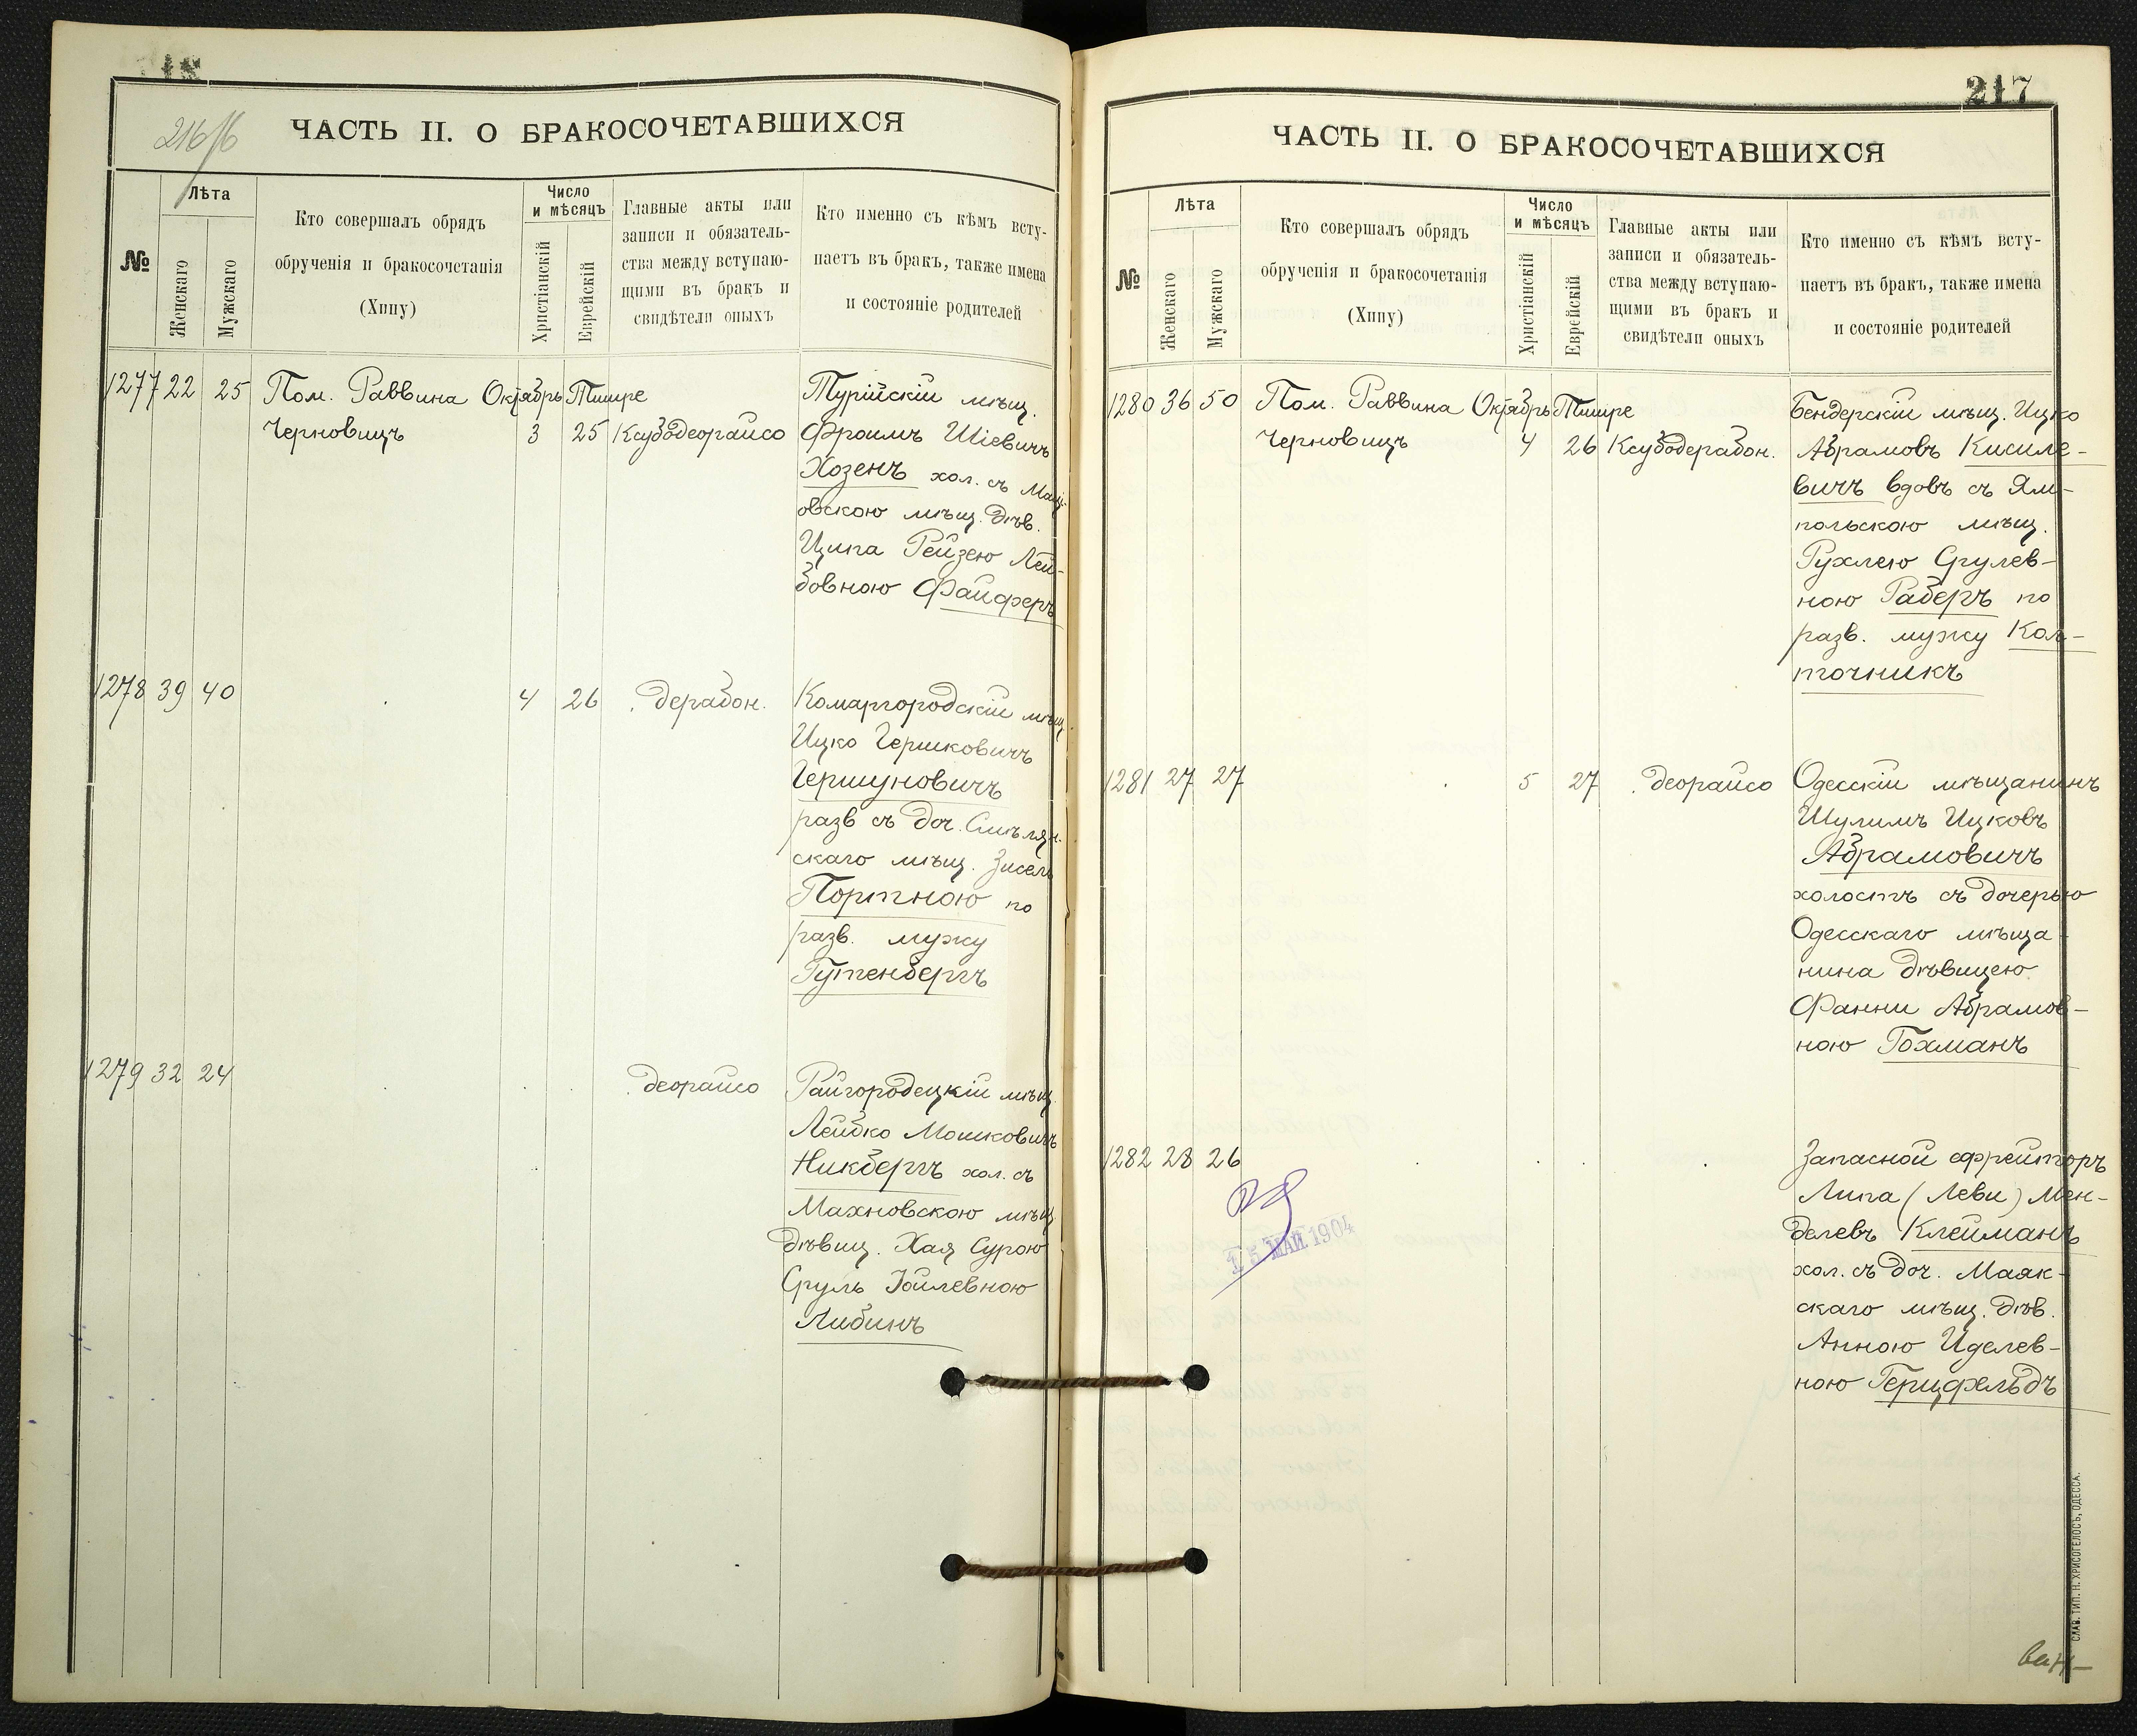 216/б
ЧАСТЬ II. О БРАКОСОЧЕТАВШИХСЯ
№
Лѣта
Женскаго
Мужскаго
Кто совершалъ обрядъ
обрученія и бракосочетанія
(Хипу)
Число
и мѣсяцъ
Христіанскій
Еврейскій
Главные акты или
записи и обязатель-
ства между вступаю-
щими въ бракъ и
свидѣтели оныхъ
Кто именно съ кѣмъ всту-
паетъ въ бракъ, также имена
и состояніе родителей
1277 22 25 Пом. Раввина Октябрь Тишре Турійскій мѣщ.
Черновицъ 3 25 Ксубодеорайсо Фроимъ Шіевичъ
Хозенъ хол. съ
овскою мѣщ. дѣв.
Ципа Рейзею Лей-
бовною Файферъ
1278 39 40 4 26 дерабон. Комаргородскій мѣщ
Ицко Гершковичъ
Гершуновичъ
разв съ доч. Смѣлян.
скаго мѣщ. Зисель
Портною по
разв. мужу
Гутенбергъ
1279 32 24 деорайсо Райгородецкій мѣщ.
Лейбко Мошковичъ
Никбергъ хол. съ
Махновскою мѣщ
дѣвиц. Хая Сурою
Сруль Іойлевною
Либинъ
217
ЧАСТЬ II. О БРАКОСОЧЕТАВШИХСЯ
№
Лѣта
Женскаго
Мужскаго
Кто совершалъ обрядъ
обрученія и бракосочетанія
(Хипу)
Число
и мѣсяцъ
Христіанскій
Еврейскій
Главные акты или
записи и обязатель-
ства между вступаю-
щими въ бракъ и
свидѣтели оныхъ
Кто именно съ кѣмъ всту-
паетъ въ бракъ, также имена
и состояніе родителей
1280 36 50 Пом. Раввина Октябрь Тишре Бендерскій мѣщ. Ицко
Черновицъ 4 26 Ксубодерабон. Абрамовъ Кисиле-
вичъ вдовъ съ Ям-
польскою мѣщ.
Рухлею Срулев-
ною Раберъ по
разв. мужу Кол-
точникъ
1281 27 27 5 27 деорайсо Одесскій мѣщанинъ
Шулимъ Ицковъ
Абрамовичъ
холостъ съ дочерью
Одесскаго мѣща-
нина дѣвицею
Фанни Абрамов-
ною Гохманъ
1282 28 26 Запасной ефрейторъ
Липа (Леви) Мен-
делевъ Клейманъ
хол. съ доч. Маяк-
скаго мѣщ. дѣв.
Анною Иделев-
ною Герцфельдъ
15 МАЙ 1904
СЛАВ. ТИП. Н. ХРИСОГЕЛОСЪ, ОДЕССА.